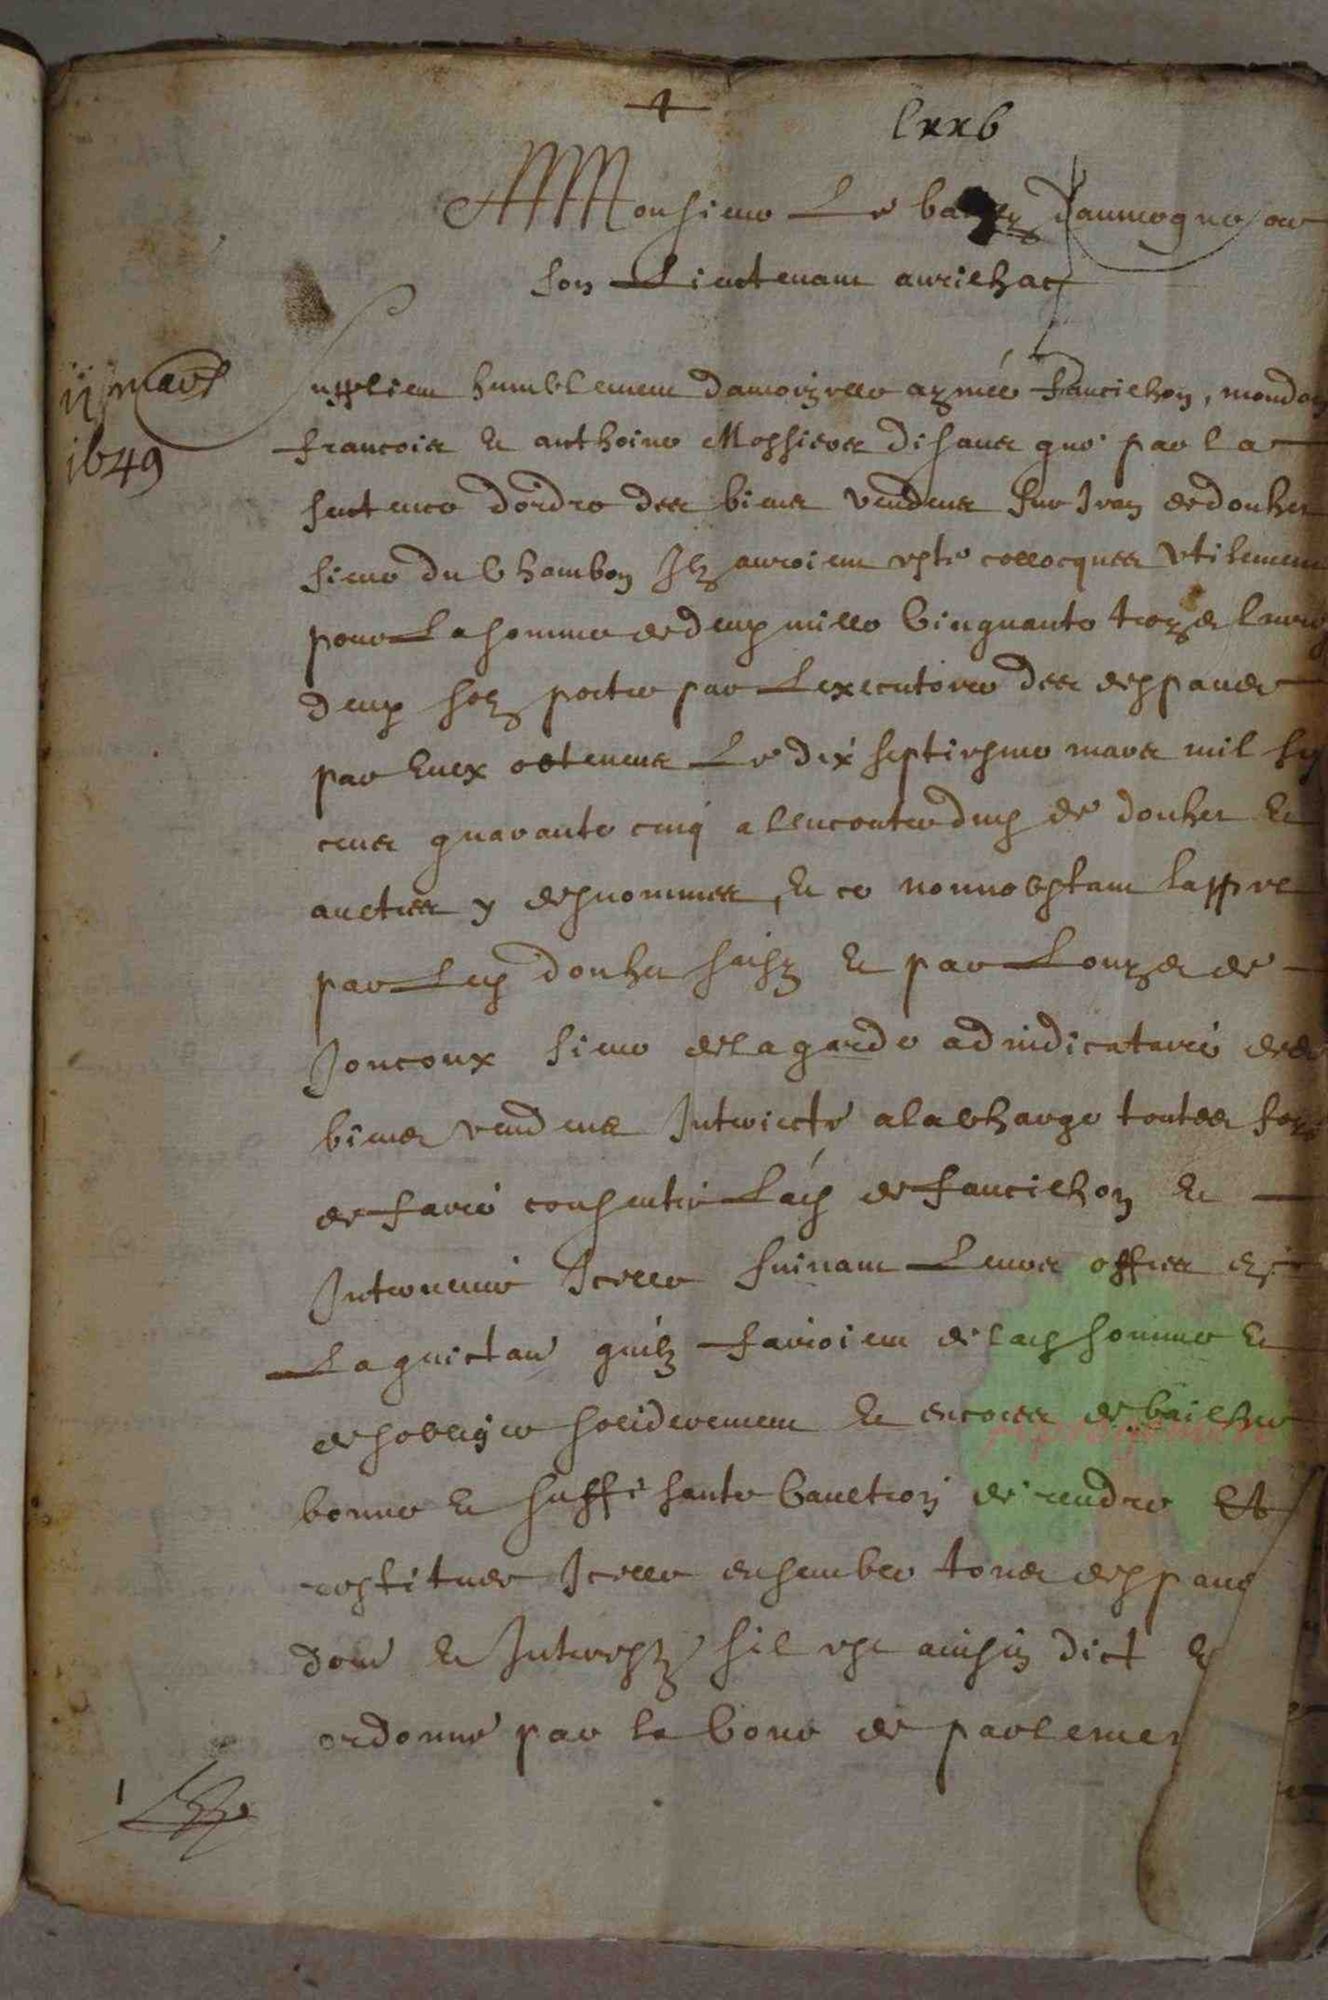 lxxv
Monsieur Le bailly dauvergne ou
son Lieutenant aurilhac
ii mars
1649
Supplient humblement damoizelle aymée Faucilhon, mondon
francois et anthoine Messieres disans que par la
sentence dordre des biens vendeus sur Jean de douhet
sieur du Chambon Ilz auroient este collocques utilement
pour La somme de deux mille Cinquante troys livres
deux solz portee par Lexecutoire des despans
par Eux obtenus Le dix septiesme mars mil six
cens quarante cinq a lencontre dud de douhet et
aultres y desnommes, et ce nonnobstant lappel
par Led douhet saisy et par Louys de
Joncoux sieur de la garde adiudicataire desd
biens vendeus Interiecte a la charge toutes foys
de faire consentir Lad de Faucilhon et
Intervenir Icelle suivant Leurs offres en
La quictance quilz fairoient de lad somme et
de sobliger soliderement et encores de bailher
bonne et suffisante Caultion de rendre Et
restituer Icelle ensemble tous despans
dom et Interestz sil est ainsin dict et
ordonne par la Cour de parlemen
1